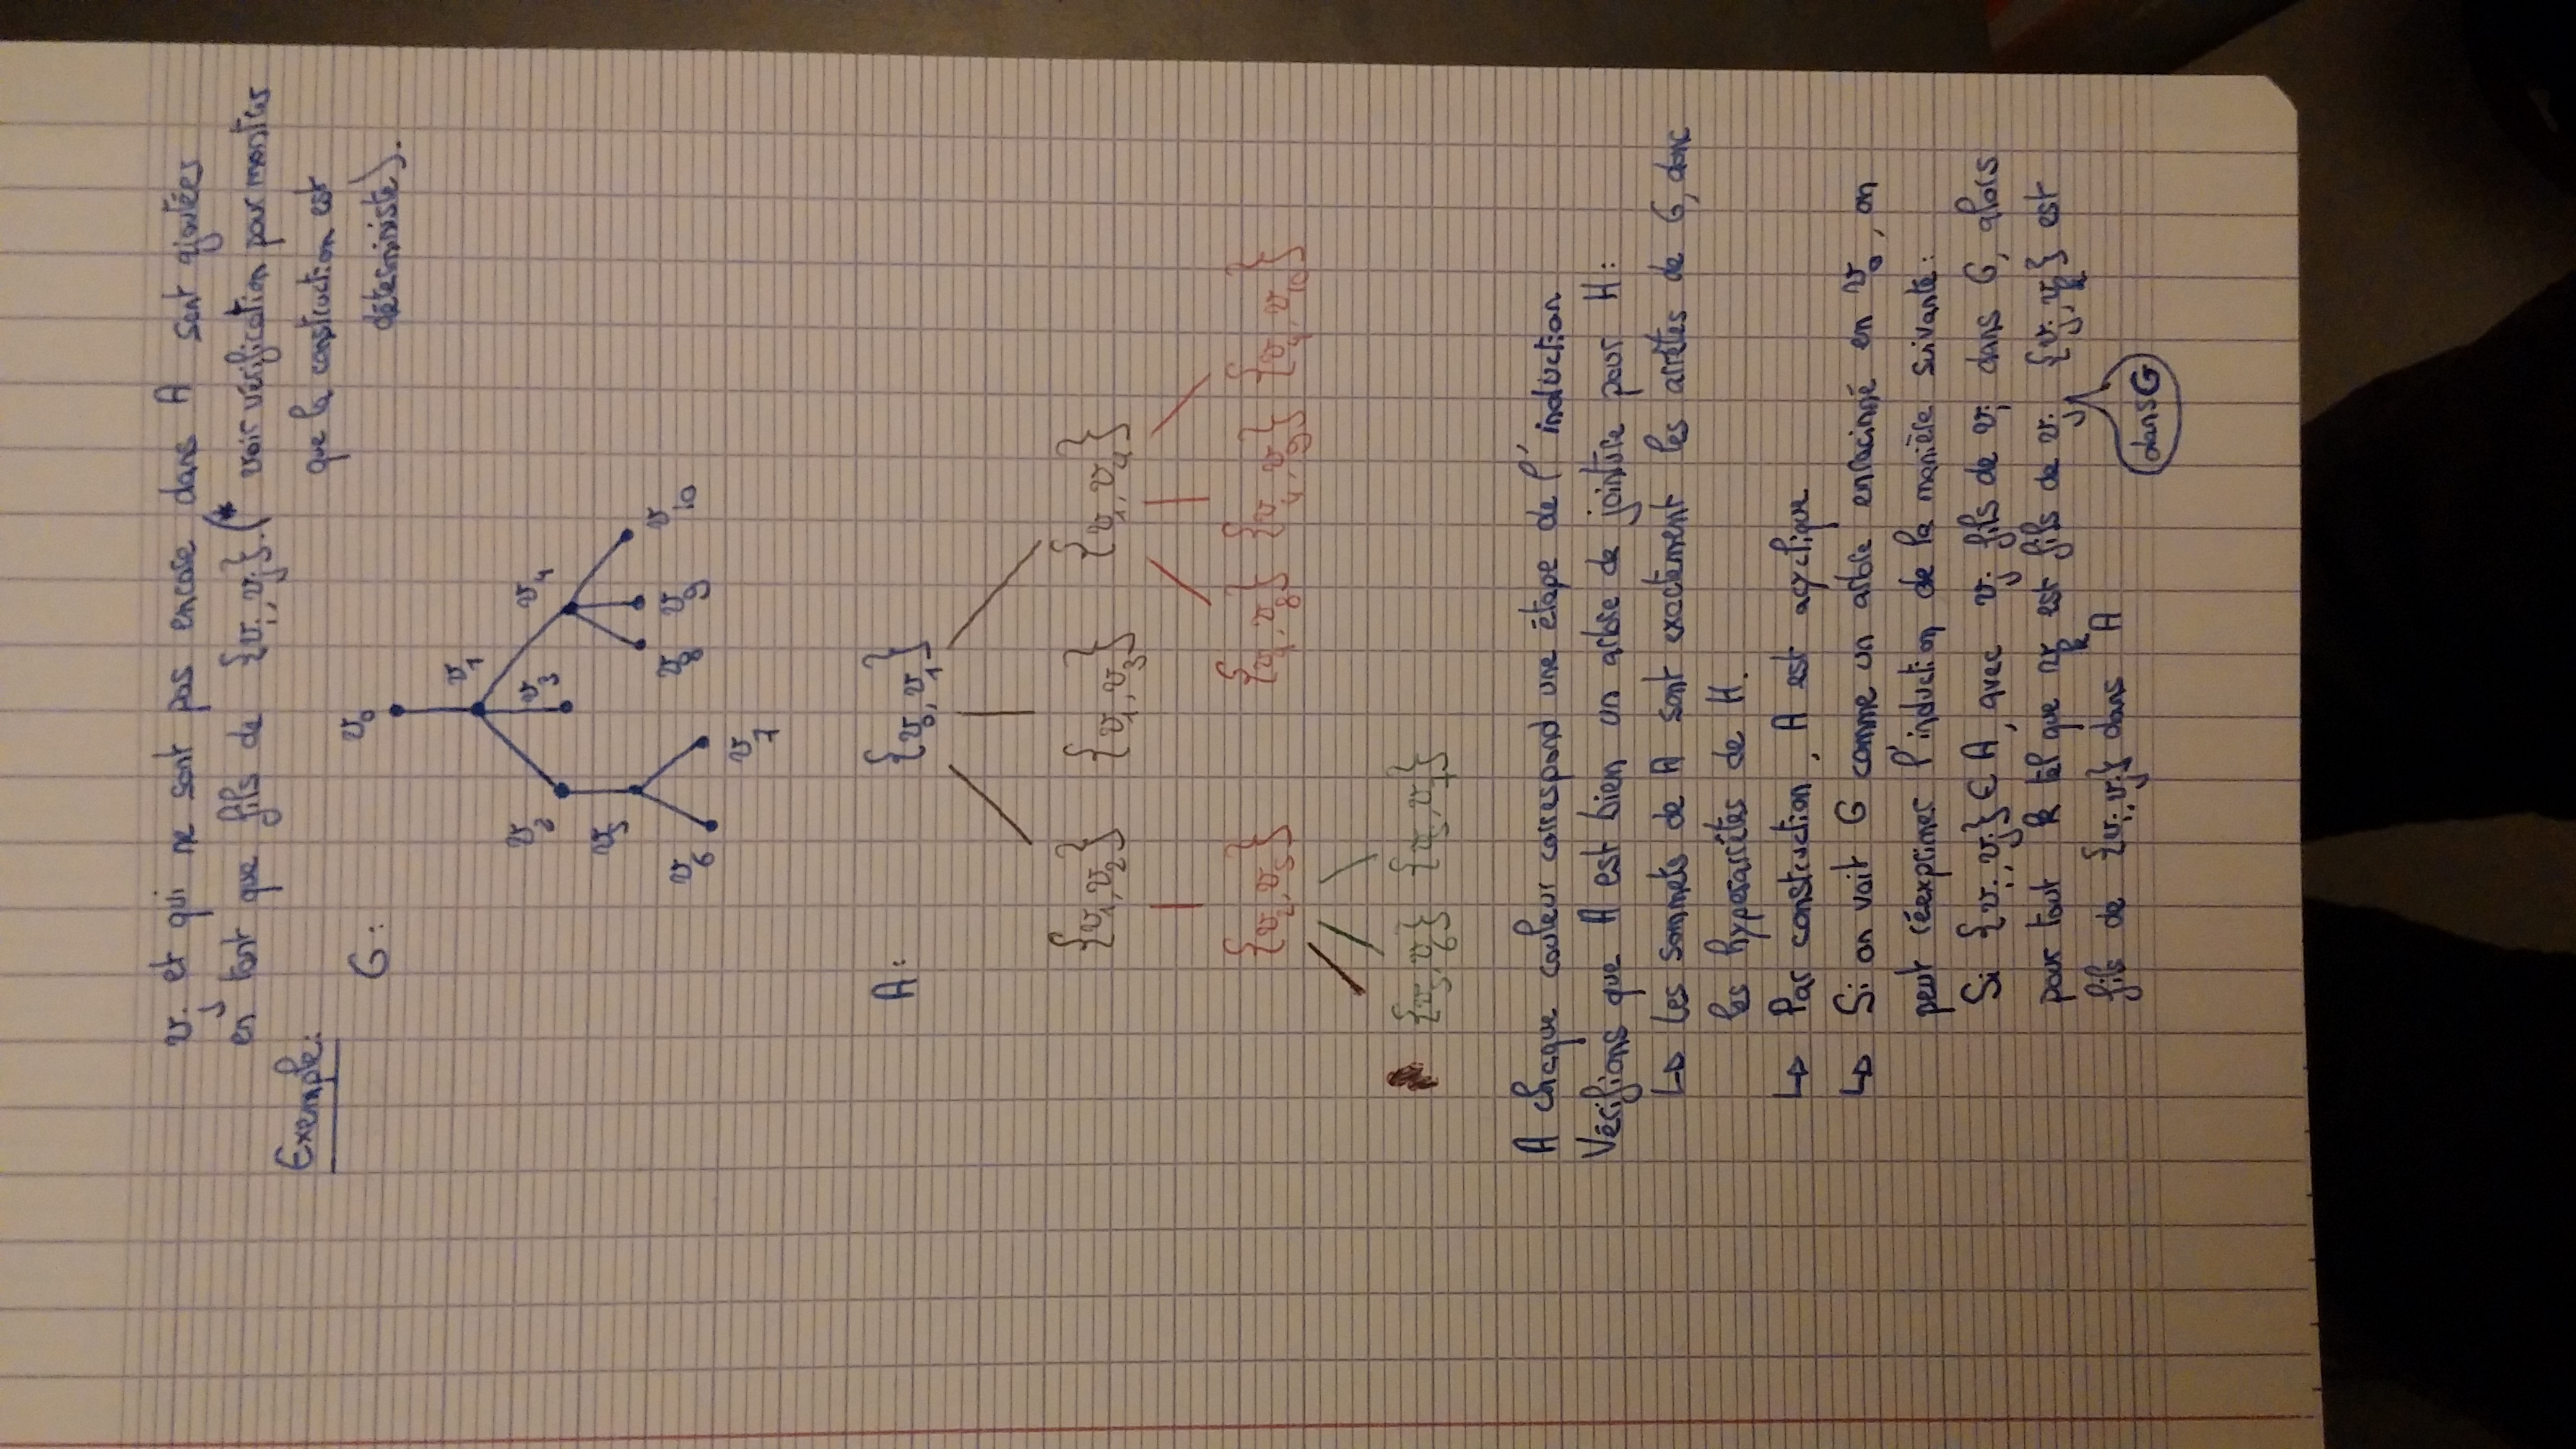 v_j et qui ne sont pas encore dans A sont ajoutées
en tant que fils de {v_i, v_j}. (* voir vérification pour montrer
que la construction est
déterministe).
Exemple:
G:
v_0
v_1
v_2 v_3 v_4
v_5
v_6 v_8 v_9 v_10
v_7
A: {v_0, v_1}
{v_1, v_2} {v_1, v_3} {v_1, v_4}
{v_2, v_5} {v_4, v_8} {v_4, v_9} {v_4, v_10}
{v_5, v_6} {v_5, v_7}
A chaque couleur correspond une étape de l'induction
Vérifions que A est bien un arbre de jointure pour H:
↳ Les sommets de A sont exactement les arrêtes de G, donc
les hyperarrêtes de H.
↳ Par construction, A est acyclique
↳ Si on voit G comme un arbre enracinné en v_0, on
peut réexprimer l'induction de la manière suivante:
Si {v_i, v_j} ∈ A, avec v_j fils de v_i dans G, alors
pour tout k tel que v_k est fils de v_j {v_j, v_k} est
fils de {v_i, v_j} dans A
dans G